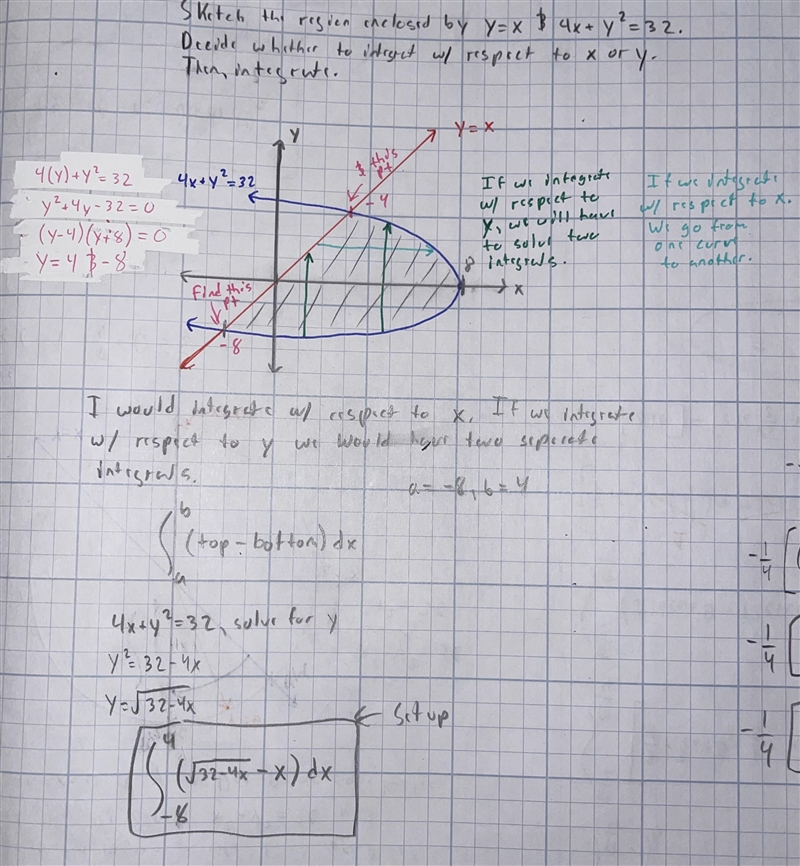 Sketch the region enclosed by y=x & 4x+y²=32.
Decide whether to integrect w/ respect to x or y.
Then, integrate.
4(y)+y²=32
y²+4y-32=0
(y-4)(y+8)=0
y=4 & -8
y
y=x
4x+y²=32
& this
pt
-4
If we integrate
w/ respect to
x, we will have
to solve two
integrals.
If we integrate
w/ respect to x.
We go from
one curve
to another.
8
x
Find this
pt
-8
I would integrate w/ respect to x. If we integrate
w/ respect to y we would have two seperate
integrals.
a=-8, b=4
∫ₐᵇ (top-bottom) dx
4x+y²=32, solve for y
y²=32-4x
y=√32-4x
← Set up
∫₋₈⁴ (√32-4x - x) dx
-1/4 [
-1/4 [
-1/4 [